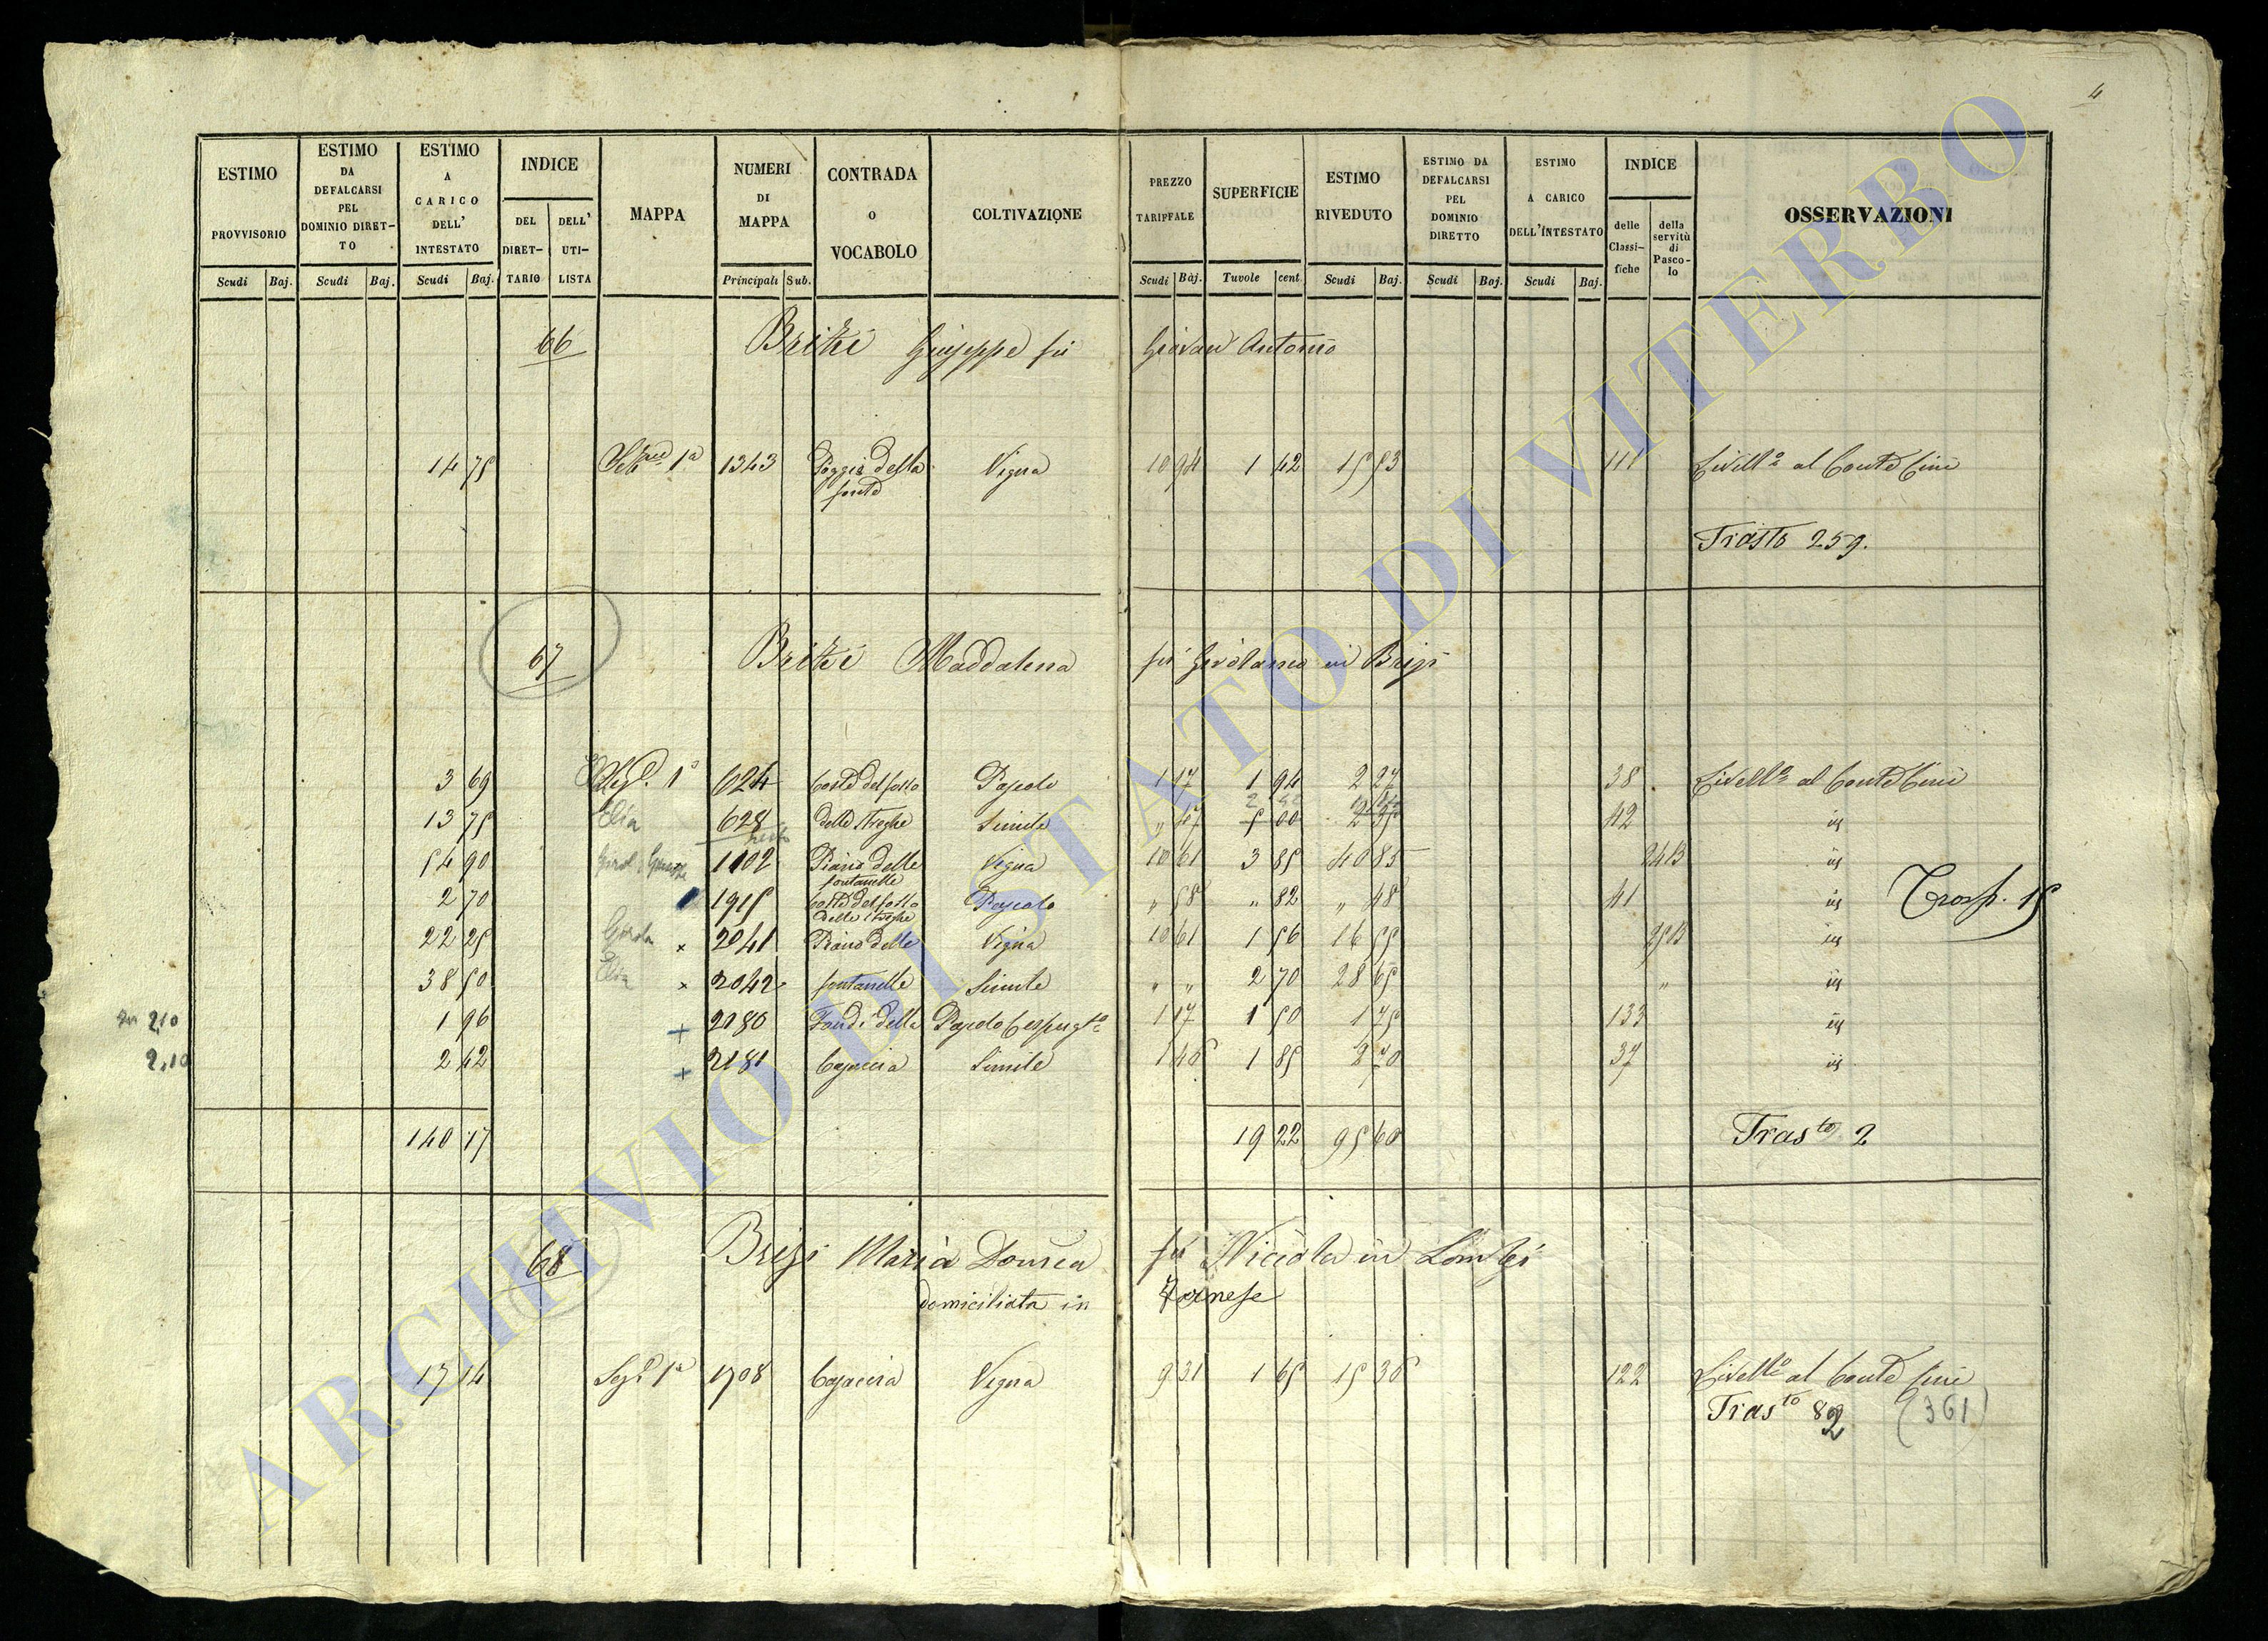 4
ESTIMO PROVVISORIO
ESTIMO DA DEFALCARSI PEL DOMINIO DIRET-TO
ESTIMO A CARICO DELL' INTESTATO
INDICE
DEL DIRET-TARIO
DELL' UTI-LISTA
MAPPA
NUMERI DI MAPPA
CONTRADA O VOCABOLO
COLTIVAZIONE
PREZZO TARIFFALE
SUPERFICIE
ESTIMO RIVEDUTO
ESTIMO DA DEFALCARSI PEL DOMINIO DIRETTO
ESTIMO A CARICO DELL'INTESTATO
INDICE
delle Classi-fiche
della servitù di Pasco-lo
OSSERVAZIONI
Scudi Baj. Scudi Baj. Scudi Baj. Principali Sub. Scudi Baj. Tavole cent. Scudi Baj. Scudi Baj. Scudi Baj.
66 Brizi Giuseppe fù Giovan Antonio
14 75 1ª 1343 Poggio della Vigna 10 94 1 42 15 53 111 Livellº al Conte Cini
fonte
Trasto 259.
67 Brizi Maddalena fù Girolamo in Brizi
3 69 1ª 624 Coste del fosso Pascolo 1 17 1 94 2 27 38 Livellº al Conte Cini
13 75 Elia 628 delle Streghe Simile " 47 5 00 2 35 42 is
54 90 1102 Piano delle Vigna 10 61 3 85 40 85 24B is
fontanelle
2 70 1915 Coste del fosso Pascolo " 58 " 82 " 48 41 is Trasp. 15
delle Streghe
22 25 × 2041 Piano delle Vigna 10 61 1 56 16 55 25B is
38 50 Elia × 2042 fontanelle Simile " " 2 70 28 65 " is
2,10 1 96 + 2180 Fondi della Pascolo Cespugtº 1 17 1 50 1 75 133 is
2,10 2 62 + 2181 Cajaccia Simile 1 46 1 85 2 70 37 is
140 17 19 22 95 60 Trasto 2
68 Brizi Maria Dom.ca fù Niccola in Lombi
domiciliata in Farnese
17 14 1ª 1708 Cajaccia Vigna 9 31 1 65 15 36 122 Livellº al Conte Cini
Trasto 82 (361)
ARCHIVIO DI STATO DI VITERBO